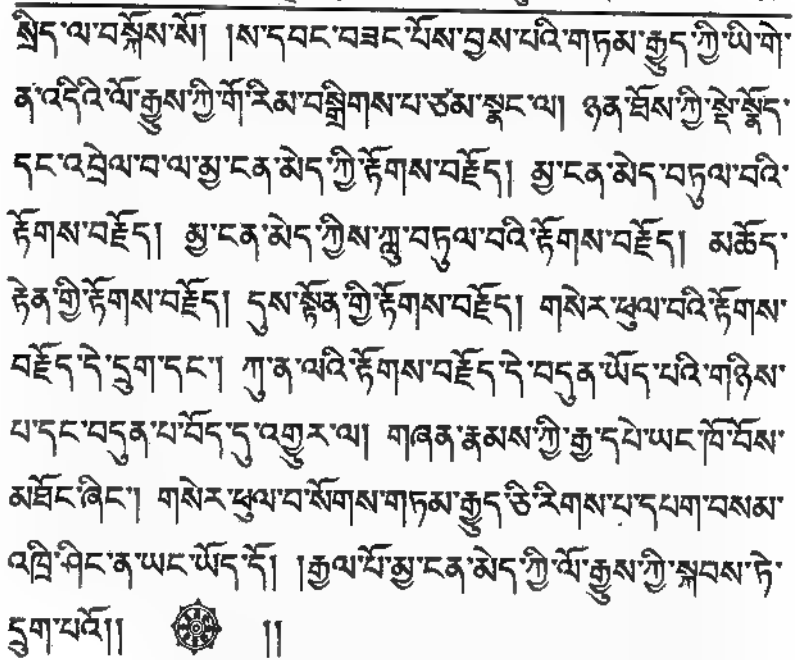 སྲིད་ལ་བསྐོས་སོ། །ས་དབང་བཟང་པོས་བྱས་པའི་གཏམ་རྒྱུད་ཀྱི་ཡི་གེ་
ན་འདིའི་ལོ་རྒྱུས་ཀྱི་གོ་རིམ་བསྒྲིགས་པ་ཙམ་སྣང་ལ། ཉན་ཐོས་ཀྱི་སྡེ་སྣོད་
དང་འབྲེལ་བ་ལ་མྱ་ངན་མེད་ཀྱི་རྟོགས་བརྗོད། མྱ་ངན་མེད་བཏུལ་བའི་
རྟོགས་བརྗོད། མྱ་ངན་མེད་ཀྱིས་ཀླུ་བཏུལ་བའི་རྟོགས་བརྗོད། མཆོད་
རྟེན་གྱི་རྟོགས་བརྗོད། དུས་སྟོན་གྱི་རྟོགས་བརྗོད། གསེར་ཕུལ་བའི་རྟོགས་
བརྗོད་དེ་དྲུག་དང་། ཀུ་ན་ལའི་རྟོགས་བརྗོད་དེ་བདུན་ཡོད་པའི་གཉིས་
པ་དང་བདུན་པ་བོད་དུ་འགྱུར་ལ། གཞན་རྣམས་ཀྱི་རྒྱ་དཔེ་ཡང་ཁོ་བོས་
མཐོང་ཞིང་། གསེར་ཕུལ་བ་སོགས་གཏམ་རྒྱུད་ཅི་རིགས་པ་དཔག་བསམ་
འཁྲི་ཤིང་ན་ཡང་ཡོད་དོ། །རྒྱལ་པོ་མྱ་ངན་མེད་ཀྱི་ལོ་རྒྱུས་ཀྱི་སྐབས་ཏེ་
དྲུག་པའོ།། །།